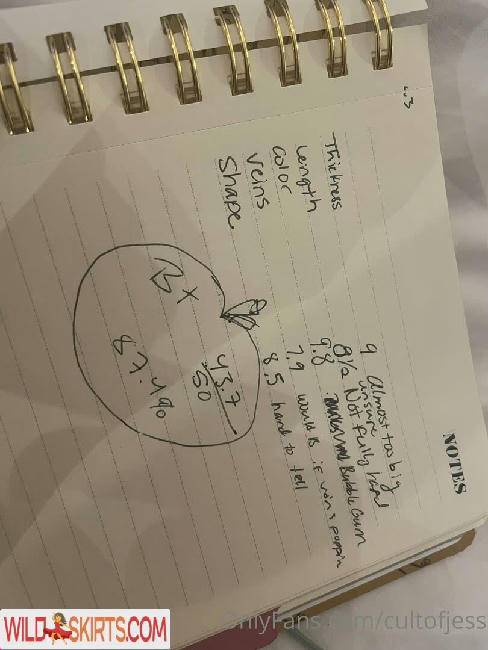 NOTES
Thickness 9 Almost too big
Length 8 1/2 unsure Not fully hard
Color 9.8 Bubble Gum
Veins 7.9 would be if veins poppin
Shape 8.5 hard to tell
B+
43.7
50
87.4%
WILDSKIRTS.COM
OnlyFans.com/cultofjess